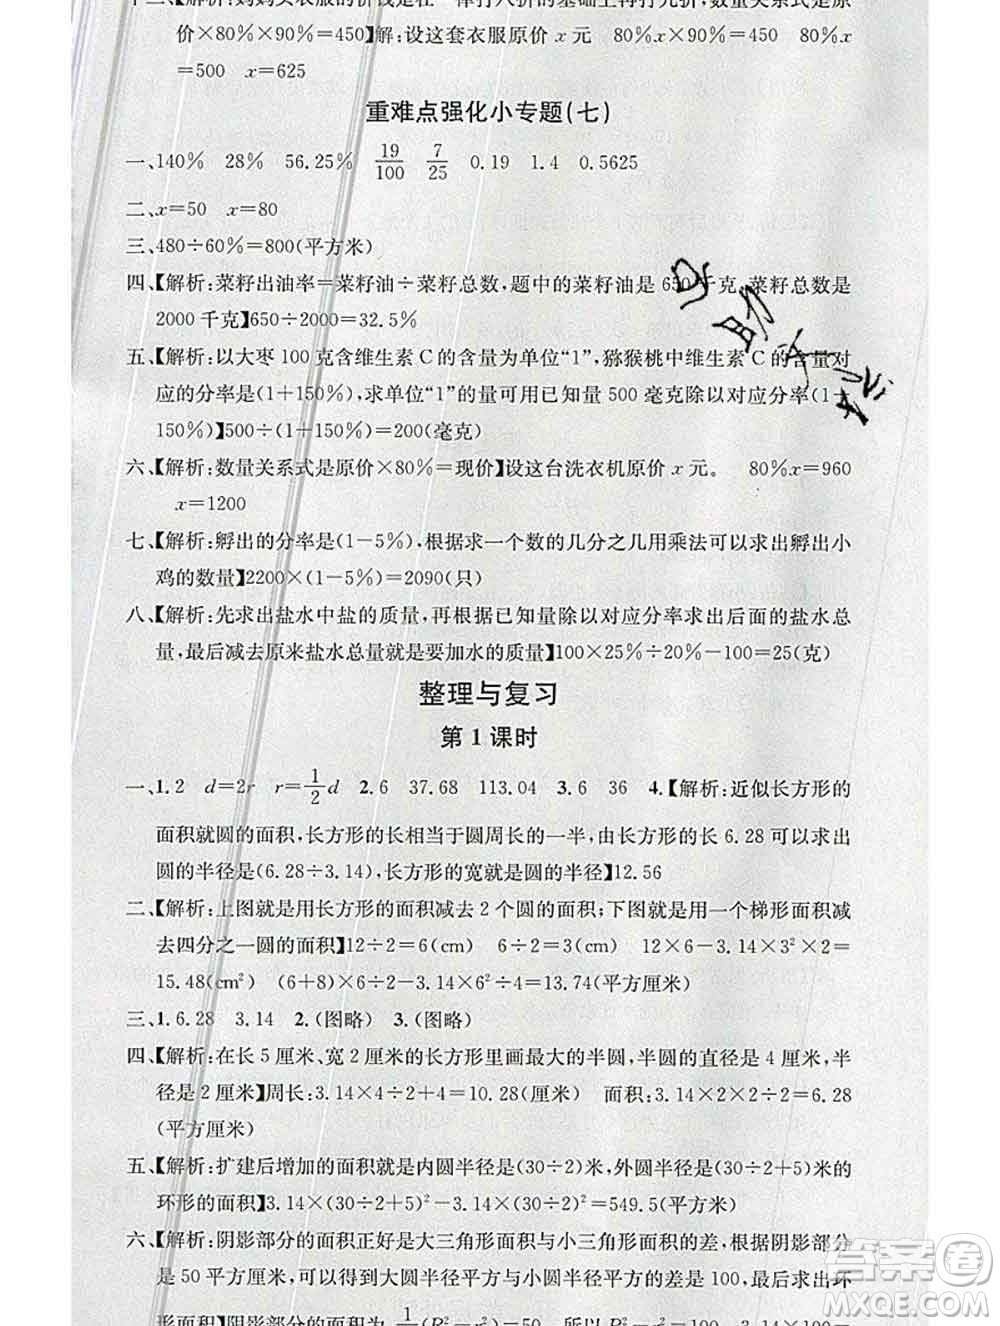 十二、【解析:妈妈买衣服的价钱是在一件打八折的基础上再打九折,数量关系式是原
价×80%×90%=450】解:设这套衣服原价 x 元 80%x×90%=450 80%x
=500 x=625
重难点强化小专题(七)
一、140% 28% 56.25% 19/100 7/25 0.19 1.4 0.5625
二、x=50 x=80
三、480÷60%=800(平方米)
四、【解析:菜籽出油率=菜籽油÷菜籽总数,题中的菜籽油是 650 千克,菜籽总数是
2000 千克】650÷2000=32.5%
五、【解析:以大枣 100 克含维生素 C 的含量为单位“1”,猕猴桃中维生素 C 的含量对
应的分率是(1+150%),求单位“1”的量可以用已知量 500 毫克除以对应分率(1+
150%)】500÷(1+150%)=200(毫克)
六、【解析:数量关系式是原价×80%=现价】设这台洗衣机原价 x 元。 80%x=960
x=1200
七、【解析:孵出的分率是(1-5%),根据求一个数的几分之几用乘法可以求出孵出小
鸡的数量】2200×(1-5%)=2090(只)
八、【解析:先求出盐水中盐的质量,再根据已知量除以对应分率求出后面的盐水总
量,最后减去原来盐水总量就是要加水的质量】100×25%÷20%-100=25(克)
整理与复习
第 1 课时
一、1.2 d=2r r=1/2d 2.6 37.68 113.04 3.6 36 4.【解析:近似长方形的
面积就圆的面积,长方形的长相当于圆周长的一半,由长方形的长 6.28 可以求出
圆的半径是(6.28÷3.14),长方形的宽就是圆的半径】12.56
二、【解析:上图就是用长方形的面积减去 2 个圆的面积;下图就是用一个梯形面积减
去四分之一圆的面积】12÷2=6(cm) 6÷2=3(cm) 12×6-3.14×3²×2=
15.48(cm²) (6+8)×6÷2-3.14×6²÷4=13.74(平方厘米)
三、1.6.28 3.14 2.(图略) 3.(图略)
四、【解析:在长 5 厘米、宽 2 厘米的长方形里画最大的半圆,半圆的直径是 4 厘米,半
径是 2 厘米】周长:3.14×4÷2+4=10.28(厘米) 面积:3.14×2×2÷2=6.28
(平方厘米)
五、【解析:扩建后增加的面积就是内圆半径是(30÷2)米,外圆半径是(30÷2+5)米的
环形的面积】3.14×(30÷2+5)²-3.14×(30÷2)²=549.5(平方米)
六、【解析:阴影部分的面积正好是大三角形面积与小三角形面积的差,根据阴影部分
是 50 平方厘米,可以得到大圆半径平方与小圆半径平方的差是 100,最后求出环
形面积】阴影部分的面积为 1/2(R²-r²)=50 所以 R²-r²=100
答案圈
MXQE.COM